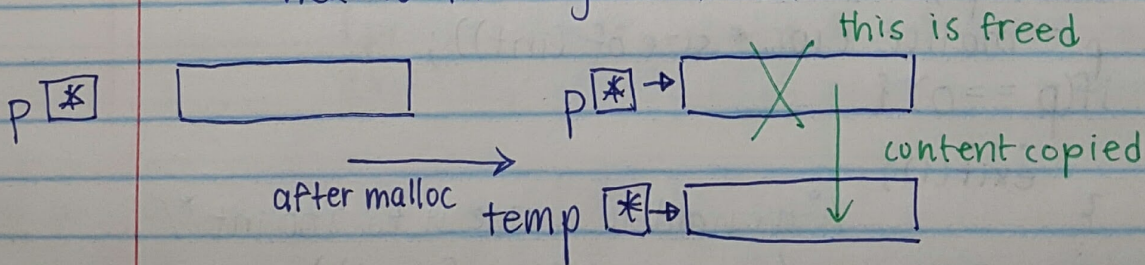 this is freed
p * p *
content copied
after malloc
temp *